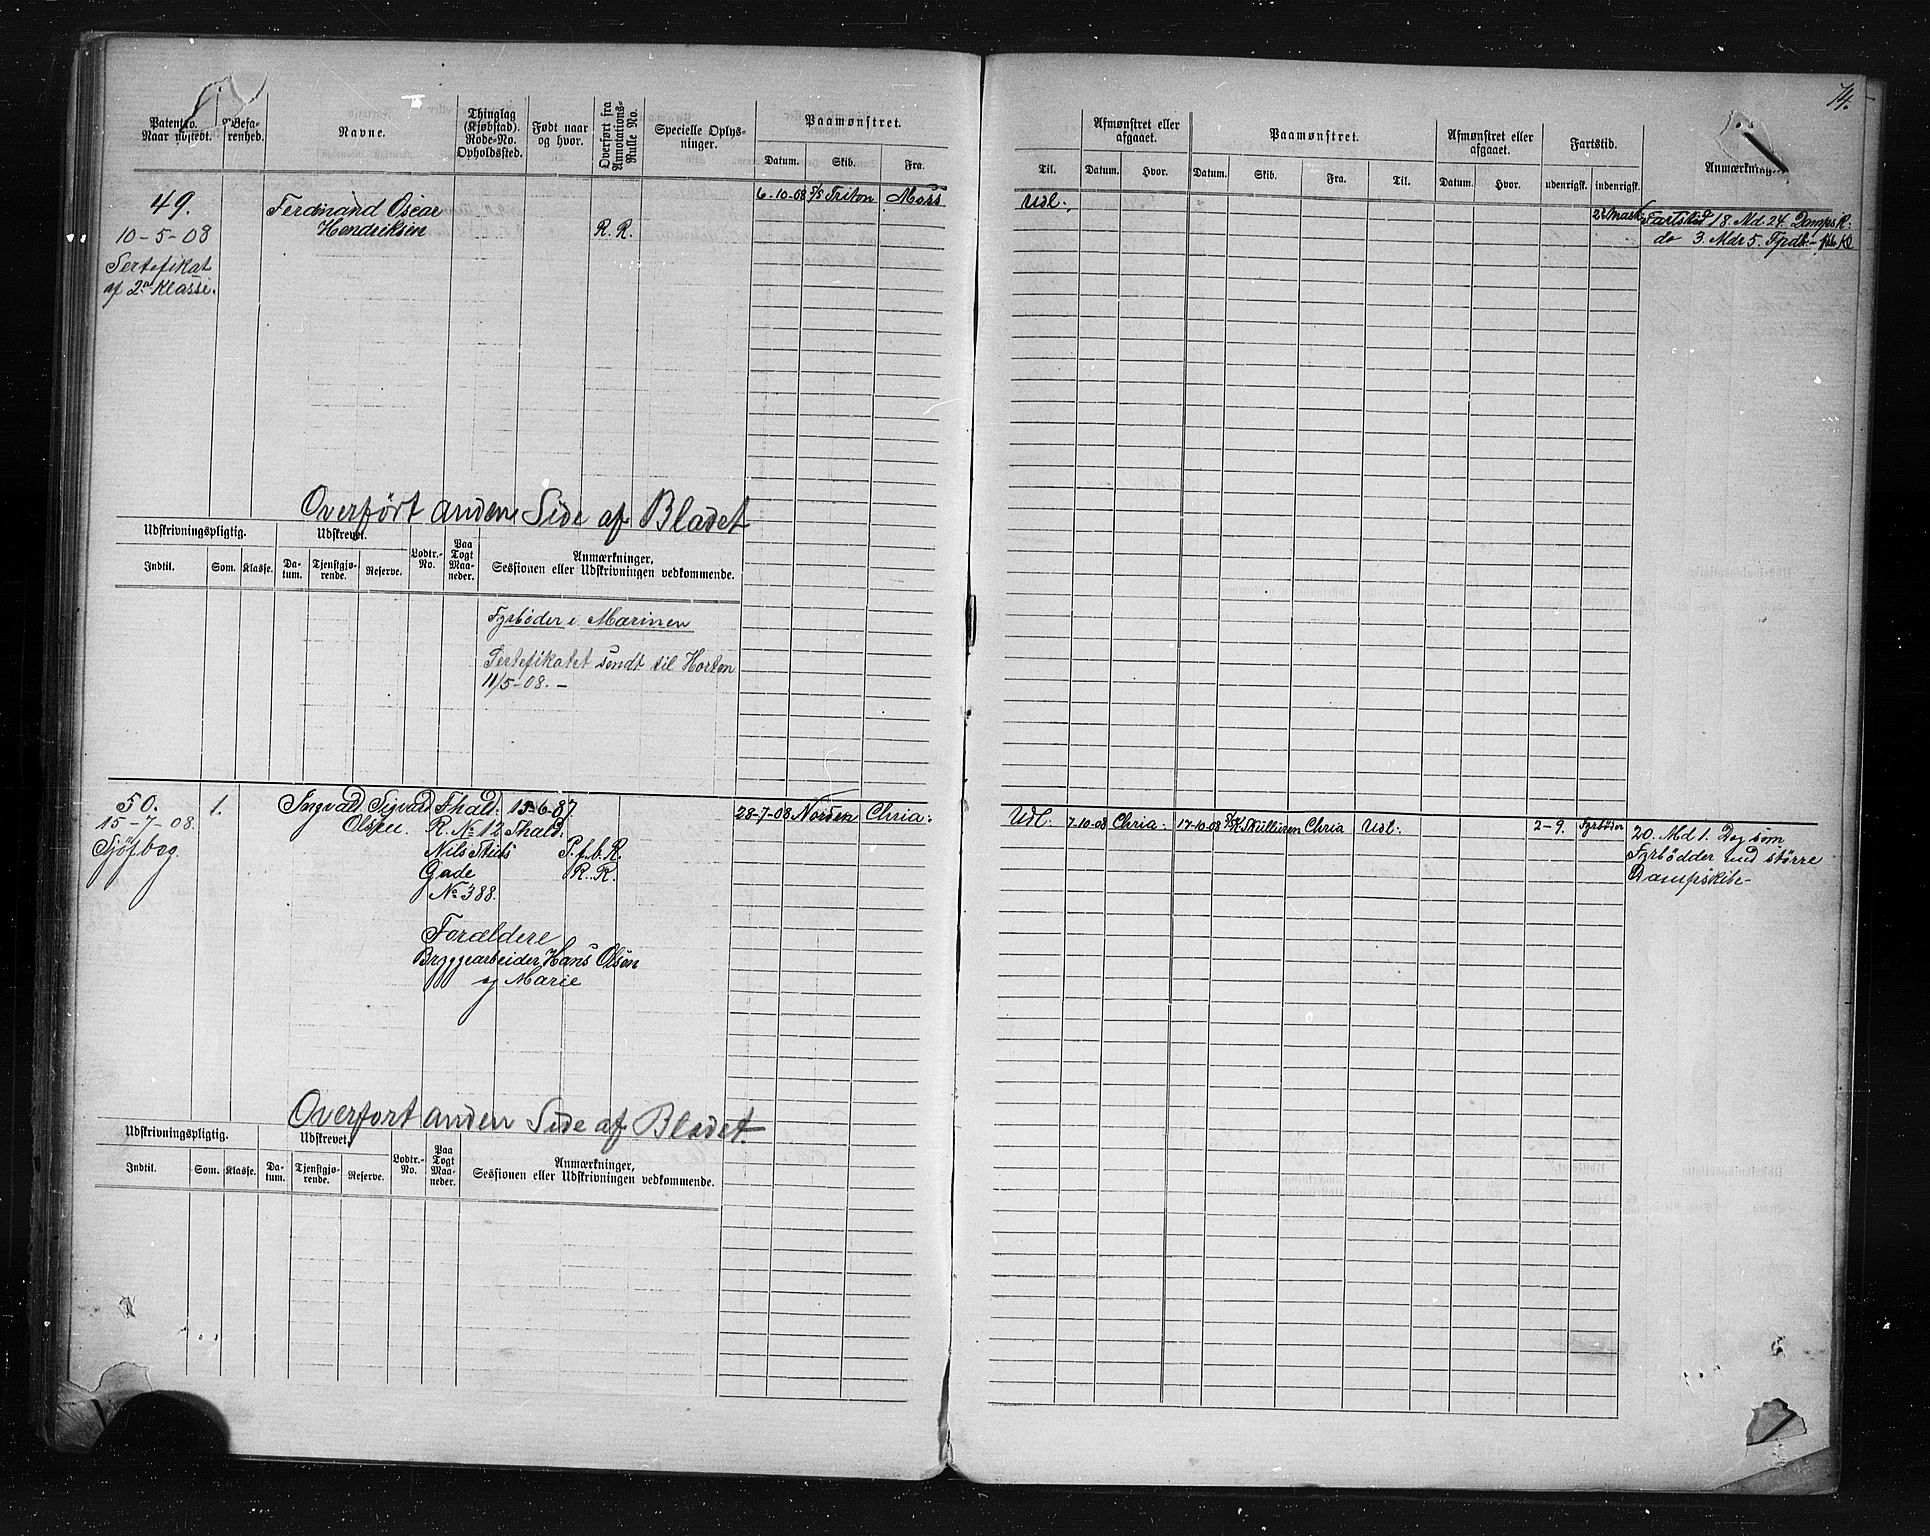 74.
Patentno.
Naar nyredt.
Befa-
renhed.
Navne.
Thinglag
(Kjøbstad).
Rode-No.
Opholdssted.
Født naar
og hvor.
Overført fra
Annotations-
Rulle No.
Specielle Oplys-
ninger.
Paamønstret.
Datum. Skib. Fra.
Til.
Afmønstret eller
afgaaet.
Datum. Hvor.
Paamønstret.
Datum. Skib. Fra. Til.
Afmønstret eller
afgaaet.
Datum. Hvor.
Fartstid.
udenrigsk. indenrigsk.
Anmærkning
49. Ferdinand Oscar 6-10-08 S/S Triton Moss Udl.
10-5-08 Hendriksen R. R.
Sertefikat
af 2den Klasse.
Fartstid 18 Md 24 Dampsk:
do 3. Mdr 5.
Overført anden Side af Bladet
Udskrivningspligtig.
Indtil. Som. Klasse.
Udskrevet.
Da-
tum.
Tjenstgjø-
rende.
Reserve.
Lodtr.-
No.
Paa
Togt
Maa-
neder.
Anmærkninger,
Sessionen eller Udskrivningen vedkommende.
Fyrbøder i Marinen
Sertefikatet sendt til Horten
11/5-08. -
50. 1. Ingvald Sigvard Fhald: 15-6-87 28-7-08 Norden Chria: Udl. 7-10-08 Chria: 17-10-08 Chria Udl: 2-9. Fyrbøder
15-7-08. Olsen. R. No 12 Fhald:
Sjöfbog
Nils Stub's P.f.b.R.
Gade R. R.
No 388.
20. Md 1. Dag som
Fyrbödder med större
Dampskibe-
Forældere
Bryggearbeider Hans Olsen
og Marie
Overfort anden Side af Bladet.
Udskrivningspligtig.
Indtil. Som. Klasse.
Udskrevet.
Da-
tum.
Tjenstgjø-
rende.
Reserve.
Lodtr.-
No.
Paa
Togt
Maa-
neder.
Anmærkninger,
Sessionen eller Udskrivningen vedkommende.